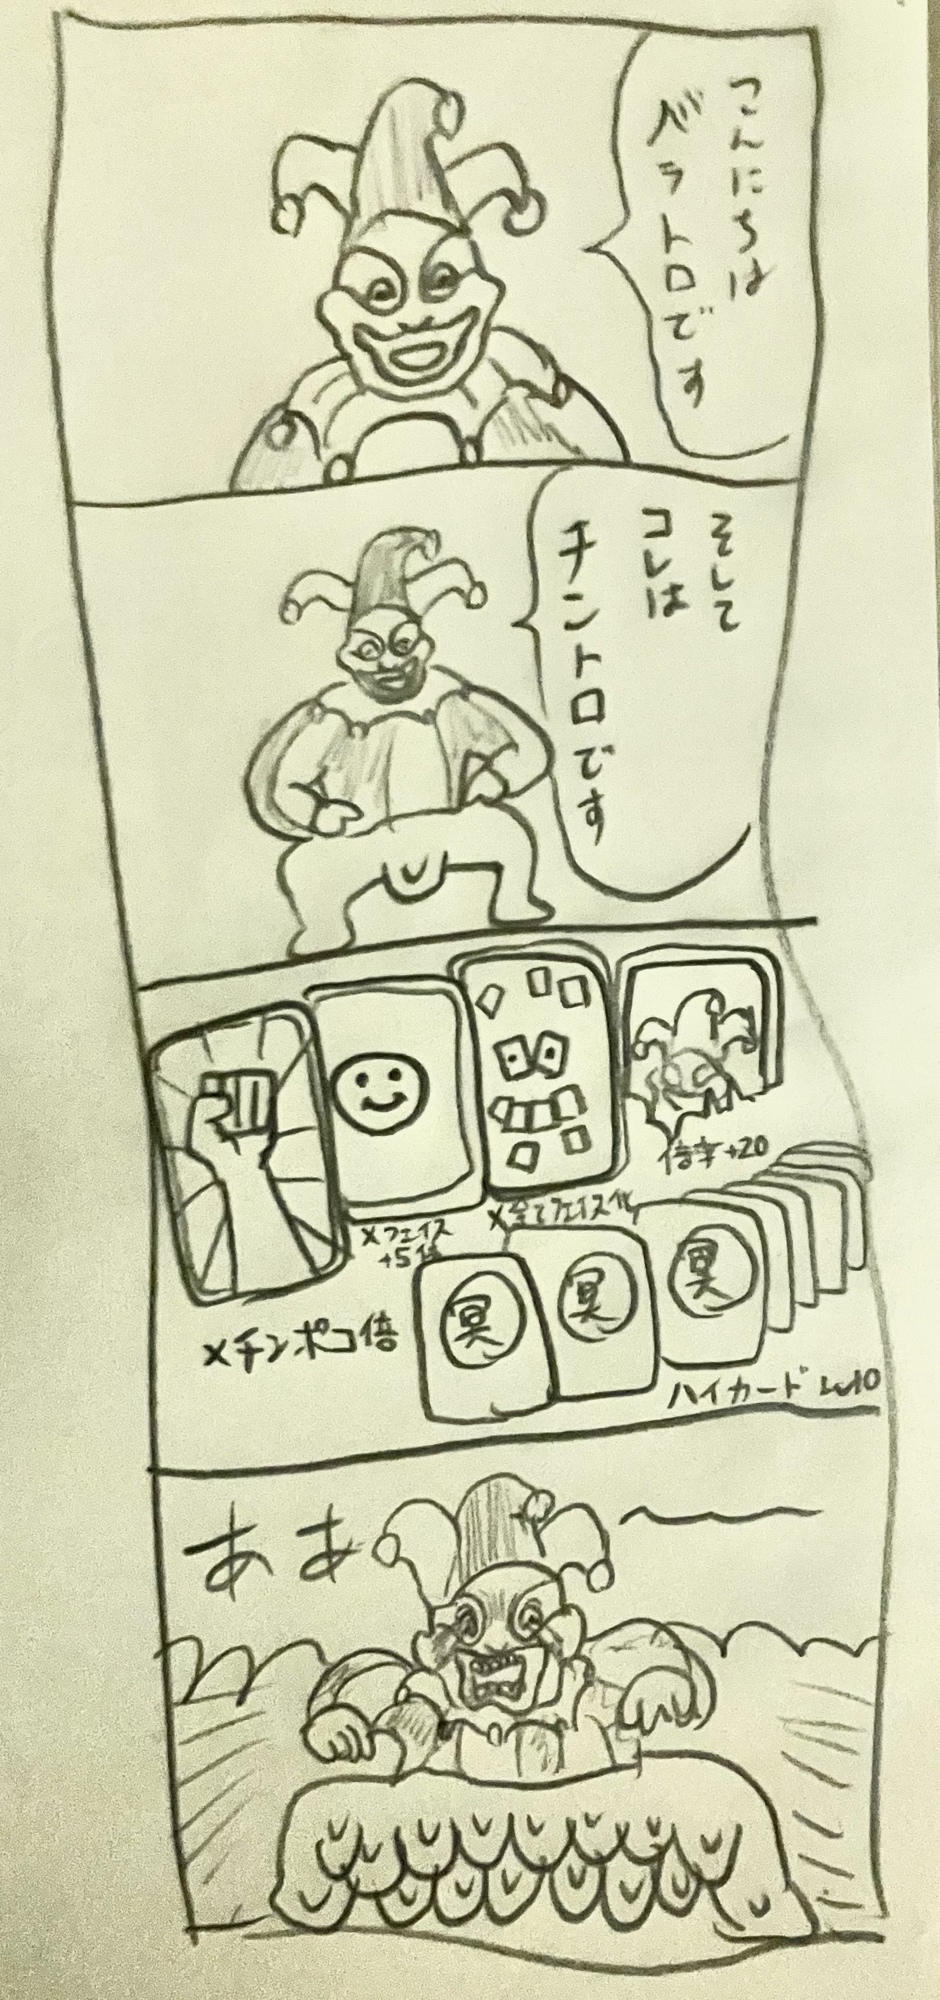 こんにちは
バラトロです
そして
コレは
チントロです
倍率+20
×フェイス
+5倍
×全てフェイス化
×チンポコ倍
冥
冥
冥
ハイカード Lv10
ああ〜